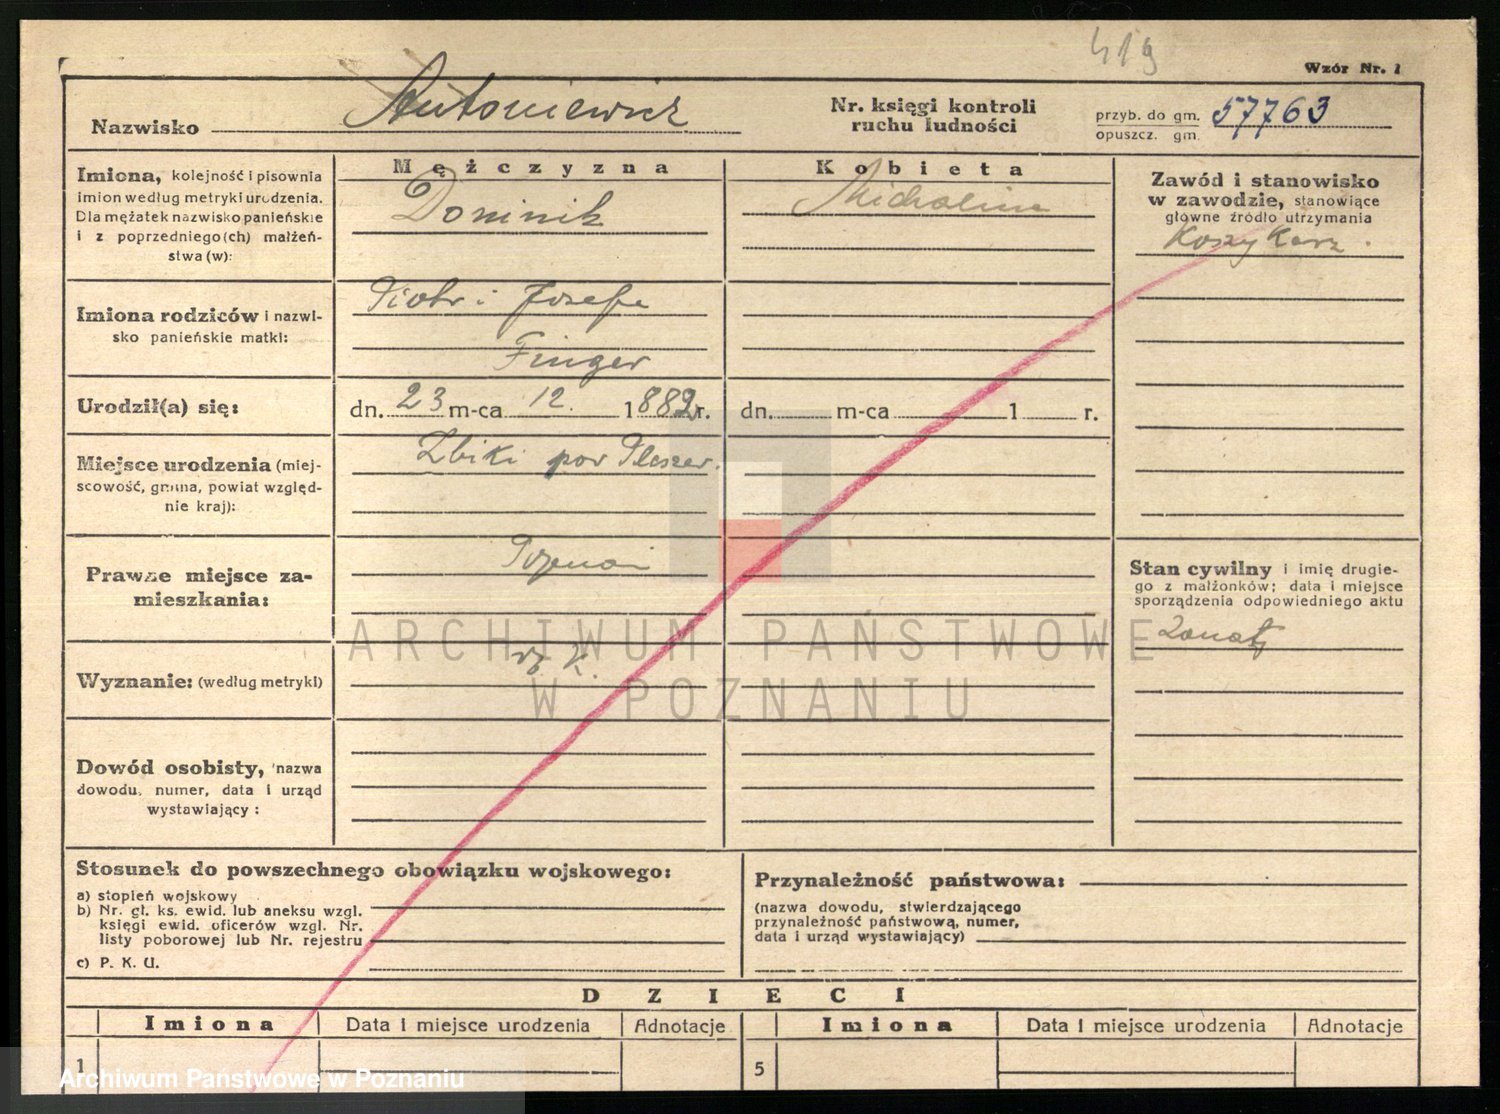 419
Wzór Nr. 1
Nazwisko Antoniewicz
Nr. księgi kontroli
ruchu ludności
przyb. do gm. 57763
opuszcz. gm.
Imiona, kolejność i pisownia
imion według metryki urodzenia.
Dla mężatek nazwisko panieńskie
i z poprzedniego(ch) małżeń-
stwa (w):
Mężczyzna
Dominik
Kobieta
Michalina
Zawód i stanowisko
w zawodzie, stanowiące
główne źródło utrzymania
Koszykarz.
Imiona rodziców i nazwi-
sko panieńskie matki:
Piotr i Josefa
Finger
Urodził(a) się:
dn. 23 m-ca 12. 1882 r.
dn. m-ca 1 r.
Miejsce urodzenia (miej-
scowość, gmina, powiat względ-
nie kraj):
Zbiki pow Pleszew.
Prawne miejsce za-
mieszkania:
Poznań
Stan cywilny i imię drugie-
go z małżonków; data i miejsce
sporządzenia odpowiedniego aktu
żonaty
Wyznanie: (według metryki)
rz. k.
Dowód osobisty, nazwa
dowodu, numer, data i urząd
wystawiający :
ARCHIWUM PAŃSTWOWE
W POZNANIU
Stosunek do powszechnego obowiązku wojskowego:
a) stopień wojskowy
b) Nr. gł. ks. ewid. lub aneksu wzgl.
księgi ewid. oficerów wzgl. Nr.
listy poborowej lub Nr. rejestru
c) P. K. U.
Przynależność państwowa:
(nazwa dowodu, stwierdzającego
przynależność państwową, numer,
data i urząd wystawiający)
DZIECI
Imiona Data i miejsce urodzenia Adnotacje Imiona Data i miejsce urodzenia Adnotacje
1
5
Archiwum Państwowe w Poznaniu